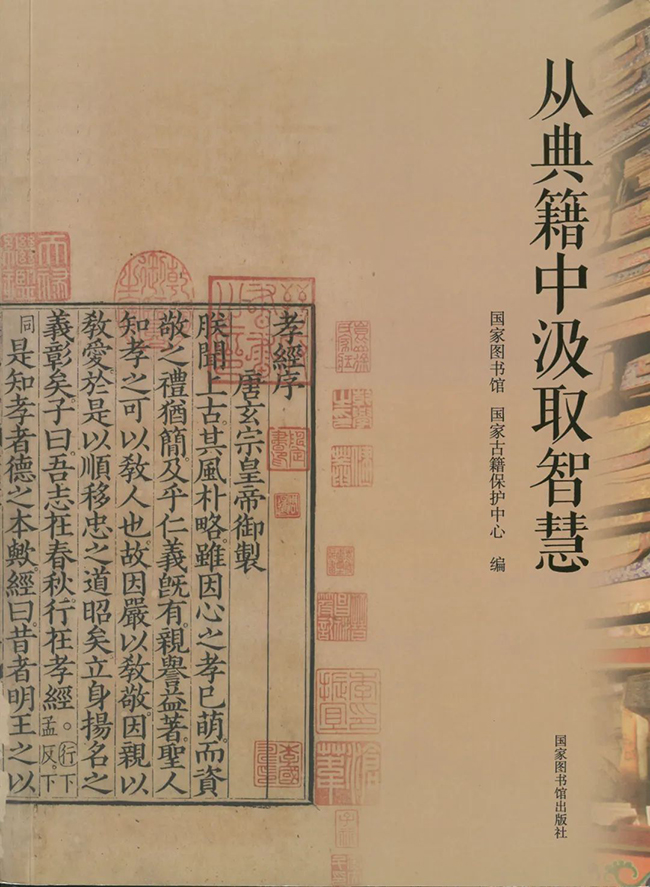 从典籍中汲取智慧
国家图书馆 国家古籍保护中心 编
国家图书馆出版社
孝經序
唐玄宗皇帝御製
朕聞上古。其風朴略。雖因心之孝已萌。而資
敬之禮猶簡。及乎仁義旣有。親譽益著。聖人
知孝之可以敎人也。故因嚴以敎敬。因親以
敎愛。於是以順移忠之道昭矣。立身揚名之
義彰矣。子曰。吾志在春秋。行在孝經。行下孟反。下
同是知孝者德之本歟。經曰。昔者明王之以